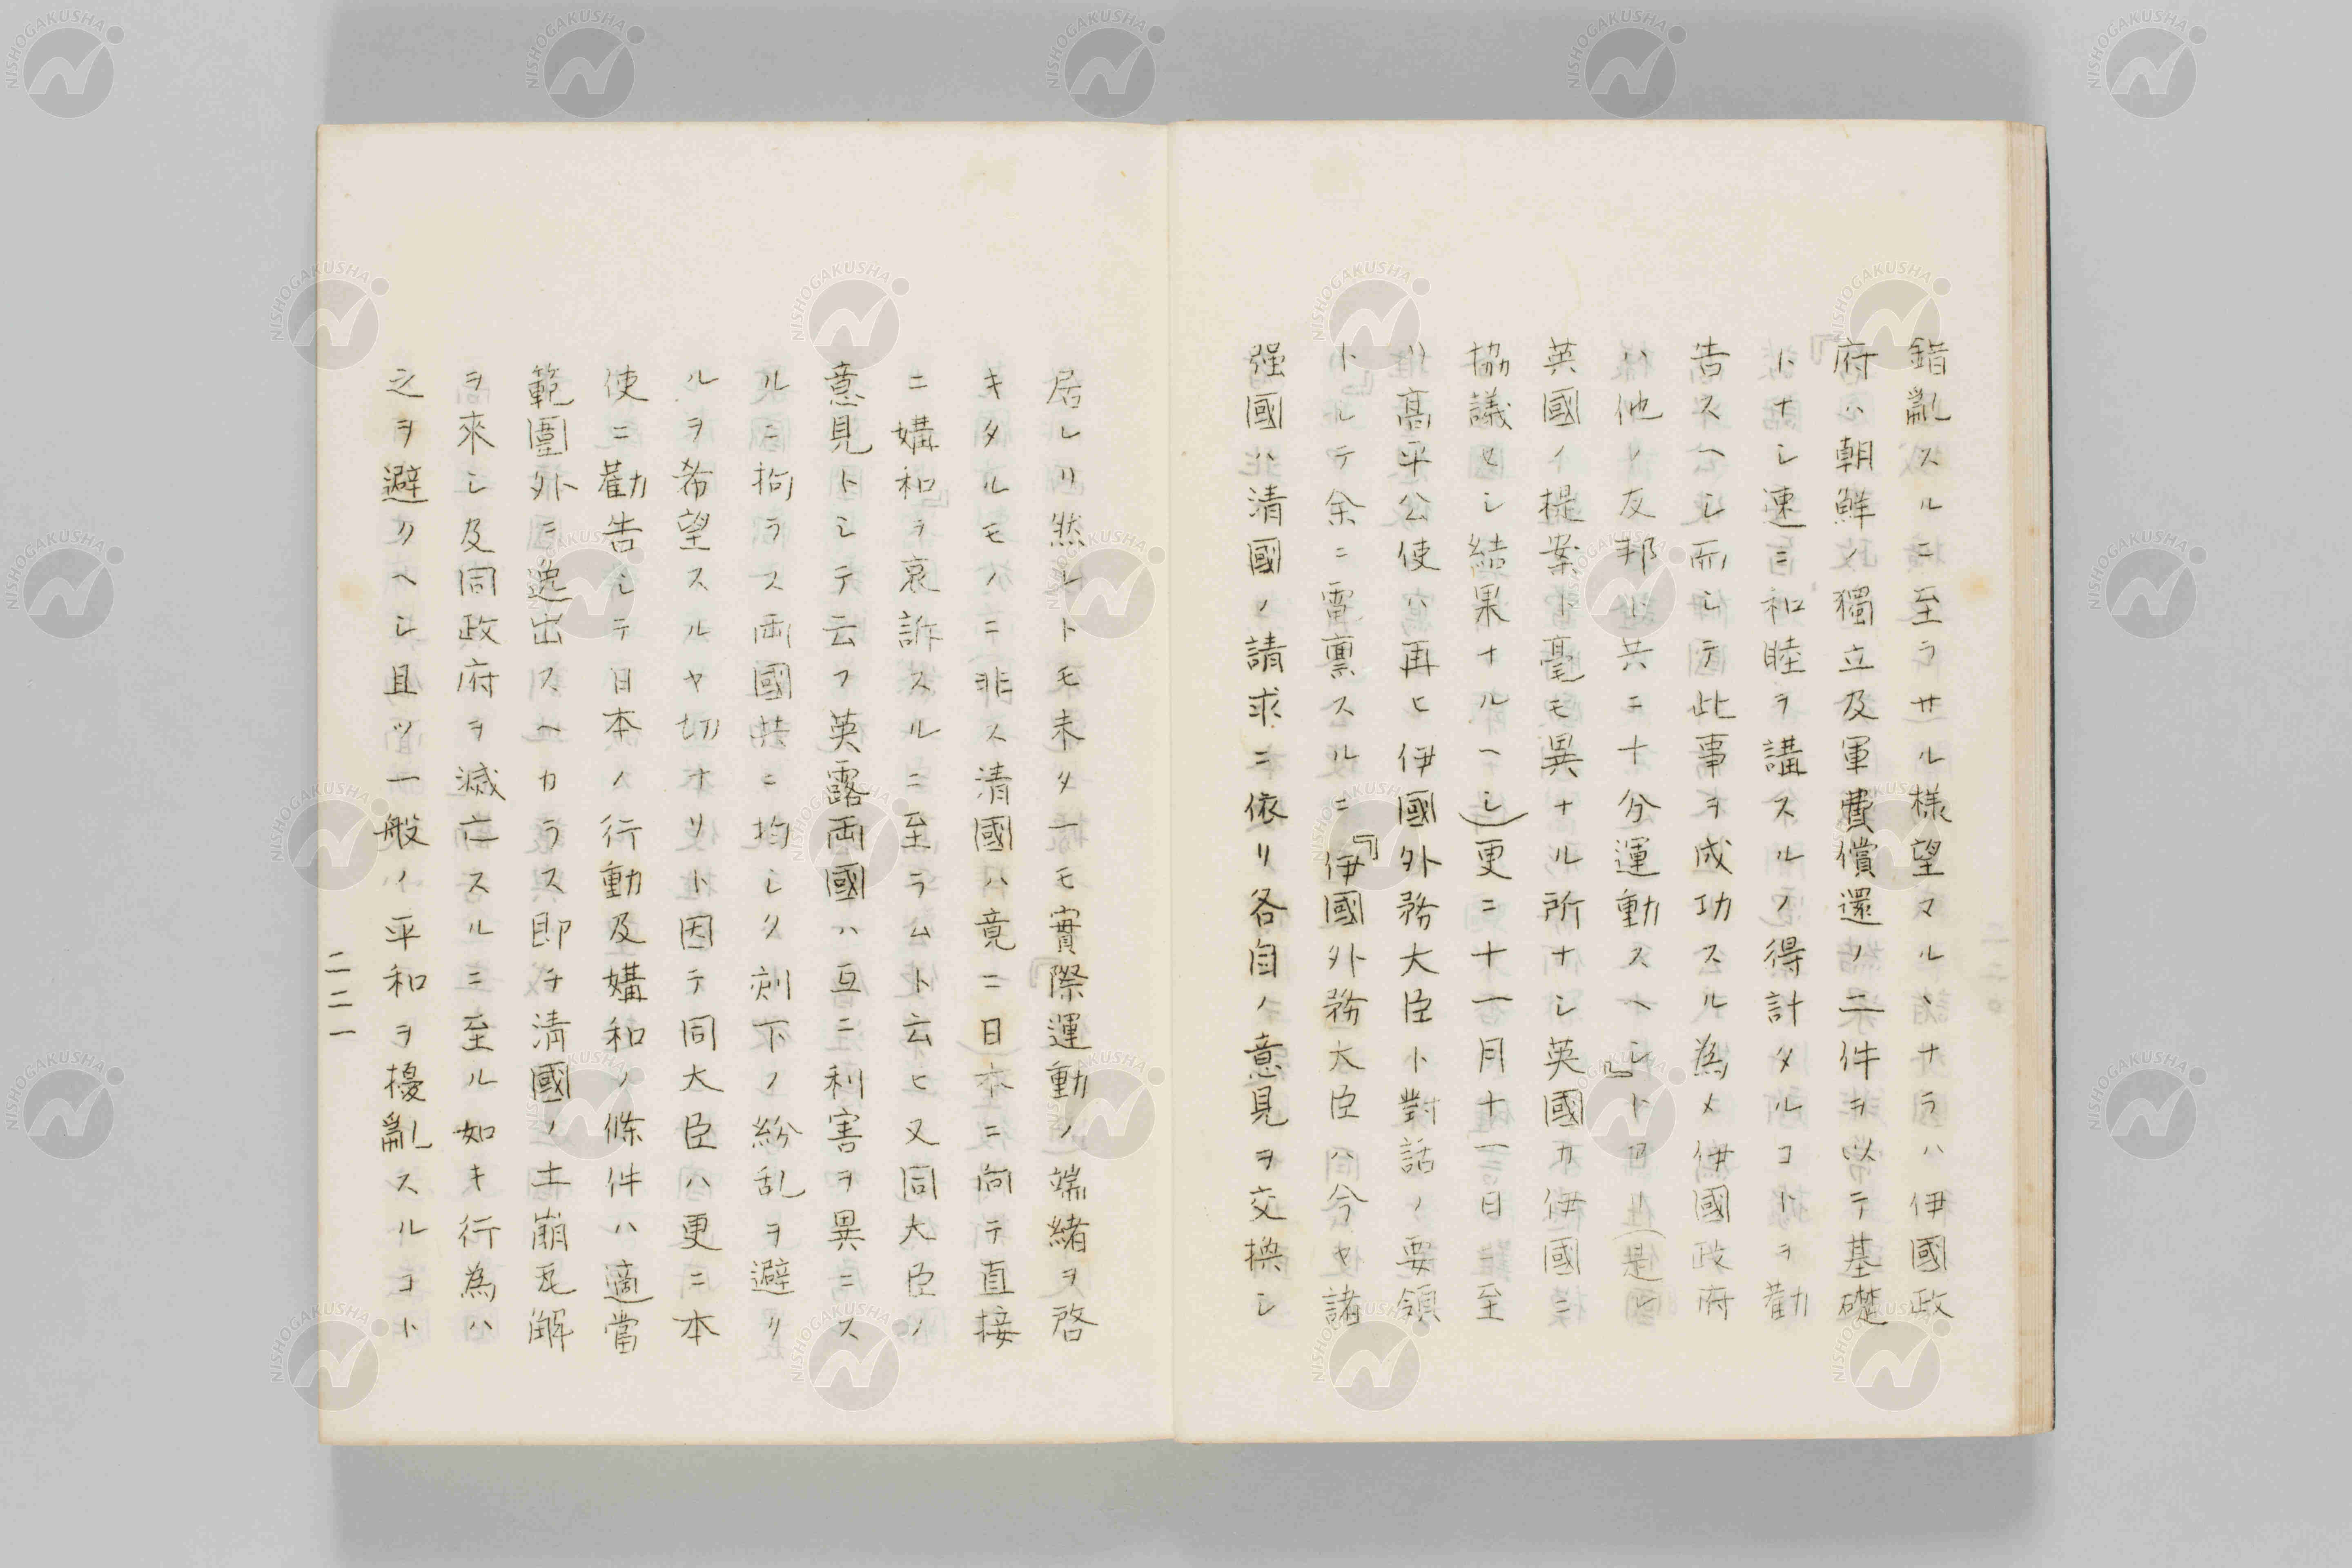 錯亂スルニ至ラサル樣望マル、ナラハ伊國政
府ハ朝鮮ノ獨立及軍費償還ノ二件ヲ以テ基礎
トナシ速ニ和睦ヲ講スルヲ得計タルコトヲ勸
告スヘシ而シテ此事ヲ成功スル為メ伊國政府
ハ他ノ友邦ト共ニ十分運動スヘシ』トアリ(是レ
英國ノ提案ト毫モ異ナル所ナシ英國カ伊國ニ
協議セシ結果ナルヘシ)更ニ十一月十一日ニ至
リ高平公使ハ再ヒ伊國外務大臣ト對話ノ要領
トルテ余ニ電稟スルニ『伊國外務大臣ハ今ヤ諸
强國ハ清國ノ請求ニ依リ各自ノ意見ヲ交換シ
居レリ然レトモ未タ一モ實際運動ノ端緒ヲ啓
キタルモノニ非ス清國ハ竟ニ日本ニ向テ直接
ニ媾和ヲ哀訴スルニ至ラムト云ヒ又同大臣ノ
意見トシテ云フ英露両國ハ互ニ利害ヲ異ニス
ルニ拘ラス両國共ニ均シク刻下ノ紛乱ヲ避ク
ルヲ希望スルヤ切ナリト因テ同大臣ハ更ニ本
使ニ勸告シテ日本ノ行動及媾和ノ條件ハ適當
範圍外ニ逸出スヘカラス即チ清國ノ土崩瓦解
ヲ來シ及同政府ヲ滅亡スルニ至ル如キ行為ハ
之ヲ避クヘシ且ツ一般ノ平和ヲ擾亂スルコト
二二一
NISHOGAKUSHA